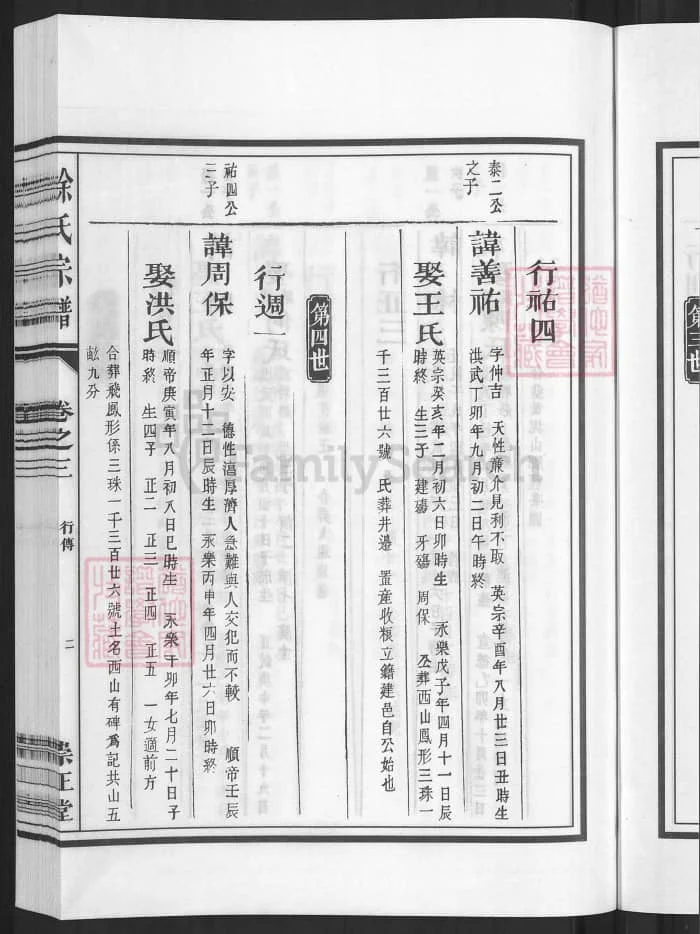 泰二公
之子
行祐四
諱善祐
字仲吉　天性廉介見利不取　英宗辛酉年八月廿三日丑時生
洪武丁卯年九月初二日午時終
娶王氏
英宗癸亥年二月初六日卯時生　永樂戊子年四月十一日辰
時終　生三子　建瑒　牙瑒　周保　公葬西山鳳形三珠一
千三百廿六號　氏葬井邊　置產收糧立籍建邑自公始也
第四世
祐四公
三子
行週一
諱周保
字以安　德性溫厚濟人急難與人交犯而不較　順帝壬辰
年正月十二日辰時生　永樂丙申年四月廿六日卯時終
娶洪氏
順帝庚寅年八月初八日巳時生　永樂辛卯年七月二十日子
時終　生四子　正二　正三　正四　正五　一女適前方
合葬飛鳳形係三珠一千三百廿六號土名西山有碑為記共山五
畝九分
徐氏宗譜
卷之三
行傳
二
崇正堂
第三世
FamilySearch